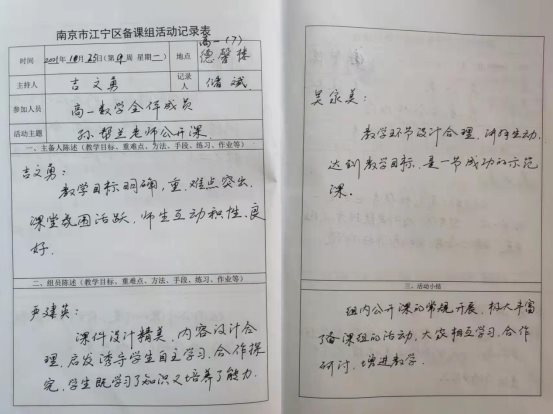 南京市江宁区备课组活动记录表
时间 2021年10月25日(第9周 星期一) 地点 高一(7) 德馨楼
主持人 吉文勇 记录人 储斌
参加人员 高一数学全体成员
活动主题 孙帮兰老师公开课
一、主备人陈述(教学目标、重难点、方法、手段、练习、作业等)
吉文勇:
教学目标明确,重、难点突出,
课堂氛围活跃,师生互动积性,良
好.
二、组员陈述(教学目标、重难点、方法、手段、练习、作业等)
尹建英:
课件设计精美,内容设计合
理,启发诱导学生自主学习,合作探
究,学生既学习了知识又培养了能力.
吴家美:
教学环节设计合理,讲解生动,
达到教学目标,是一节成功的示范
课.
三、活动小结
组内公开课的常规开展,极大丰富
了备课组的活动,大家相互学习,合作
研讨,增进教学.